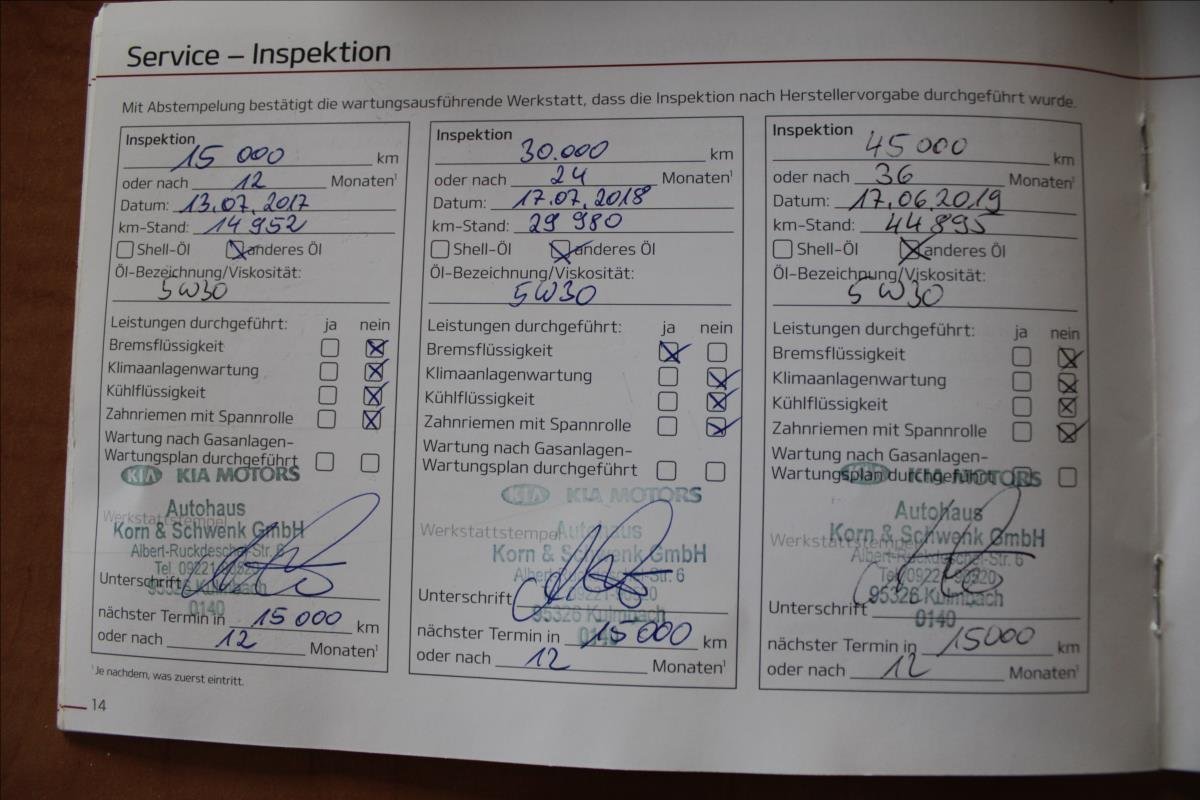 Service – Inspektion
Mit Abstempelung bestätigt die wartungsausführende Werkstatt, dass die Inspektion nach Herstellervorgabe durchgeführt wurde.
Inspektion
15 000 km
oder nach 12 Monaten¹
Datum: 13.07.2017
km-Stand: 14 952
Shell-Öl anderes Öl
Öl-Bezeichnung/Viskosität:
5W30
Leistungen durchgeführt: ja nein
Bremsflüssigkeit
Klimaanlagenwartung
Kühlflüssigkeit
Zahnriemen mit Spannrolle
Wartung nach Gasanlagen-
Wartungsplan durchgeführt
KIA KIA MOTORS
Autohaus
Werkstattstempel
Korn & Schwenk GmbH
Albert-Ruckdeschel-Str. 6
Tel. 09221-90520
95326 Kulmbach
Unterschrift
0140
nächster Termin in 15 000 km
oder nach 12 Monaten¹
Inspektion
30.000 km
oder nach 24 Monaten¹
Datum: 17.07.2018
km-Stand: 29 980
Shell-Öl anderes Öl
Öl-Bezeichnung/Viskosität:
5W30
Leistungen durchgeführt: ja nein
Bremsflüssigkeit
Klimaanlagenwartung
Kühlflüssigkeit
Zahnriemen mit Spannrolle
Wartung nach Gasanlagen-
Wartungsplan durchgeführt
KIA KIA MOTORS
Werkstattstempel
Autohaus
Korn & Schwenk GmbH
Albert-Ruckdeschel-Str. 6
09221-90520
Unterschrift
95326 Kulmbach
0140
nächster Termin in 15 000 km
oder nach 12 Monaten¹
Inspektion
45 000 km
oder nach 36 Monaten¹
Datum: 17.06.2019
km-Stand: 44 895
Shell-Öl anderes Öl
Öl-Bezeichnung/Viskosität:
5W30
Leistungen durchgeführt: ja nein
Bremsflüssigkeit
Klimaanlagenwartung
Kühlflüssigkeit
Zahnriemen mit Spannrolle
Wartung nach Gasanlagen-
Wartungsplan durchgeführt
KIA MOTORS
Autohaus
Werkstattstempel
Korn & Schwenk GmbH
Albert-Ruckdeschel-Str. 6
Tel. 09221-90520
95326 Kulmbach
Unterschrift
0140
nächster Termin in 15000 km
oder nach 12 Monaten¹
¹Je nachdem, was zuerst eintritt.
14